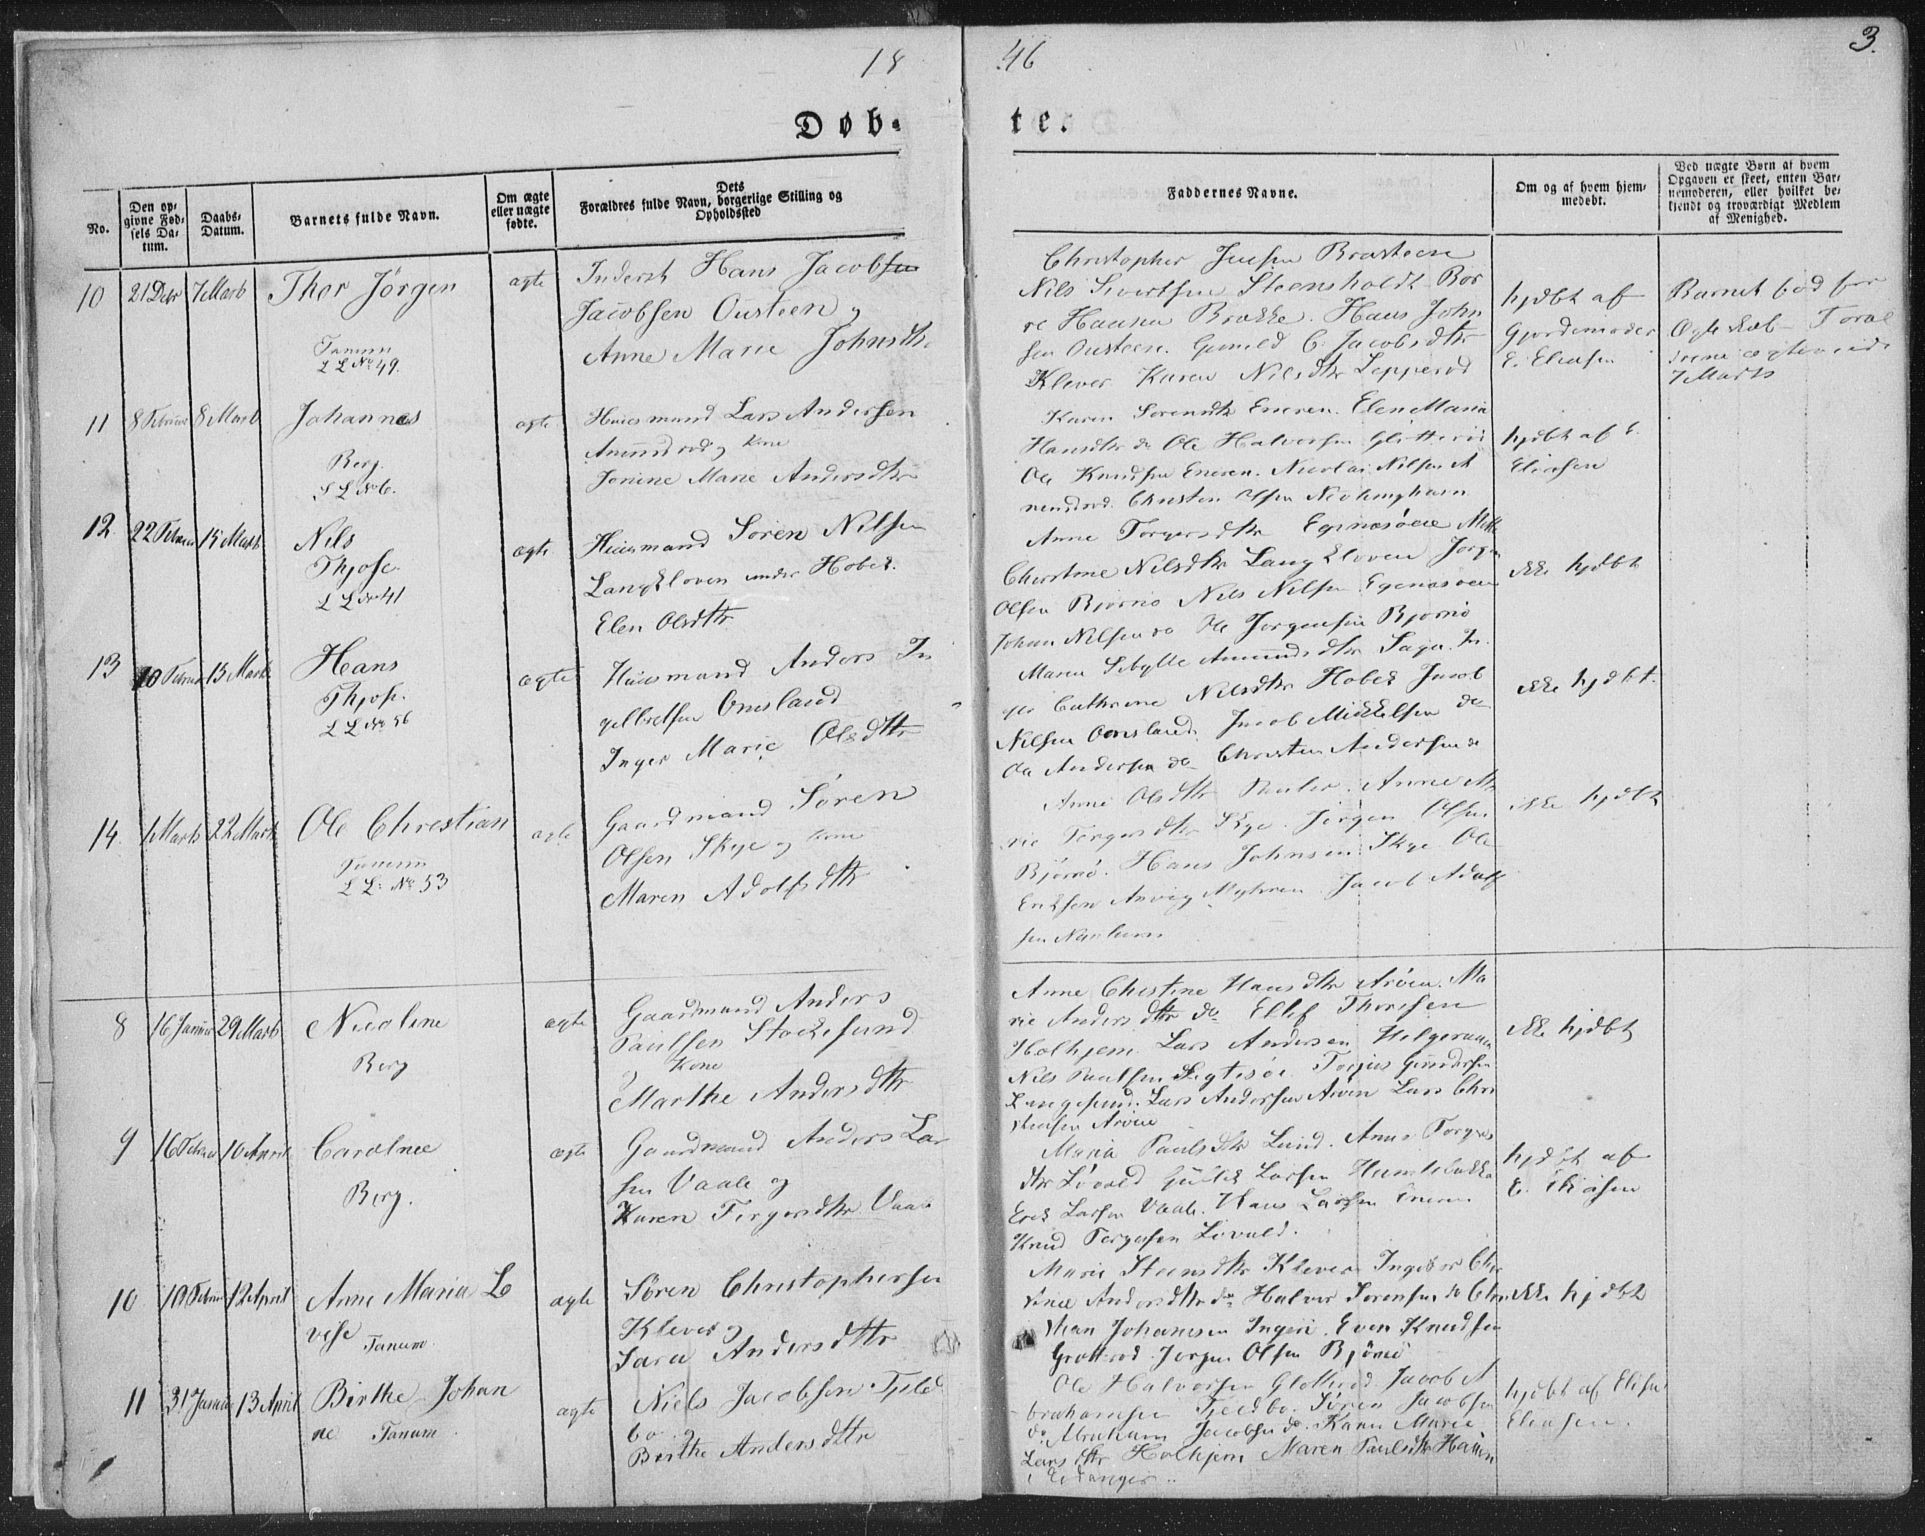 18 46
3.
Døb- te.
No.
Den opgivne Fødsels Datum.
Daabs-Datum.
Barnets fulde Navn.
Om ægte eller uægte fødte.
Dets Forældres fulde Navn, borgerlige Stilling og Opholdssted
Faddernes Navne.
Om og af hvem hjemmedøbt.
Ved uægte Børn af hvem Opgaven er skeet, enten Barnemoderen, eller hvilket bekjendt og troværdigt Medlem af Menighed.
10 21 Decbr 7 Marts Thor Jørgen ægte Inderst Hans Jacobsen
Jacobsen Ousteen og
Anne Marie Johnsdtr
Tanum
L L No 49.
Christopher Jensen Brasteen
Nils Sivertsen Steensholdt Bor
re Hansen Brække. Hans John
sen Ousteen. Gunild C. Jacobsdtr
Klever Karen Nilsdtr Lepperød
hjdbt af
Gjordemoder
E. Eliasen
Barnet fød før
Ægteskab
7 Marts
11 8 Februar 8 Marts Johannes ægte Huusmand Lars Andersen
Amundrød og Kone
Jonine Marie Andersdtr
Berg.
L L No 6.
Karen Sørensdtr Eneren. Elen Maria
Hansdtr do Ole Halvorsen Glitterød
Ole Knudsen Eneren. Nicolai Nilsen A
mundrød. Christen Olsen
hjdbt af E.
Eliasen
12. 22 Februar 15 Marts Nils ægte Huusmand Søren Nilsen
Langkloven under Hobek.
Elen Olsdtr
Thjose.
L L No 41
Anne Torgersdtr
Christine Nilsdtr Langkloven Jorgen
Olsen Bjørnø Nils Nilsen
Johan Nilsen do Ole Jørgensen Bjørnø
ikke hjdbt
13 10 Februar 15 Marts Hans ægte Huusmand Anders In
gelbretsen Omsland
Inger Marie Olsdtr
Thjose.
L L No 56
Maren Sibylle Amundsdtr
Cathrine Nilsdtr Hobek Jacob
Nilsen Omsland. Jacob Mikkelsen do
Ole Andersen do Christen Andersen do
ikke hjdbt.
14. 1 Marts 22 Marts Ole Christian ægte Gaardmand Søren
Olsen Skye og Kone
Maren Adolfsdtr
Tanum
L L: No 53
Anne Olsdtr Anne Ma
rie Torgersdtr Skye. Jörgen Olsen
Bjørnø. Hans Johnsen Skye Ole
Eriksen Myhren Jacob Adolf
sen
ikke hjdbt
8 16 Januar 29 Marts Nicoline ægte Gaardmand Anders
Paulsen Stokkesund
og Kone
Marthe Andersdtr
Berg
Anne Christine Hansdtr Arøen. Ma
rie Andersdtr do Ellef Thorsen
Holhjem. Lars Andersen Helgeraaen
Nils Paulsen Torjus Gundersen
Langesund. Lars Andersen Arøen Lars Chri
stensen Arøen
ikke hjdbt
9 16 Februar 10 April Caroline ægte Gaardmand Anders Lar
sen Vaale og
Karen Torgersdtr Vaale
Berg.
Maria Paulsdtr Lund. Anne Torgers
dtr Løvald Gullik Larsen Humlebakke
Erik Larsen Vaale. Hans Larsen Eneren
Knud Torgersen Løvald.
hjdbt af
E. Eliasen
10 10 Februar 12 April Anne Maria Lo
vise Tanum. ægte Søren Christophersen
Klever og
Sara Andersdttr
Marie Steensdtr Klever Ingeborg Chri
stine Andersdtr do Halvor Sørensen do Chri
stian Johannesen Ingeri. Even Knudsen
Grøtterød. Jorgen Olsen Bjønnø
ikke hjdbt
11 31 Januar 13 April Birthe Johan
ne Tanum ægte Niels Jacobsen Tjeld
bo. og
Birthe Andersdttr
Ole Halvorsen Glotterød. Jacob A
brahamsen Tjeldbo. Søren Jacobsen
do Abraham Jacobsen do. Karen Marie
Larsdtr Holhjem Maren Paulsdtr
i Eidanger
hjdbt af Elisa
Eliasen.